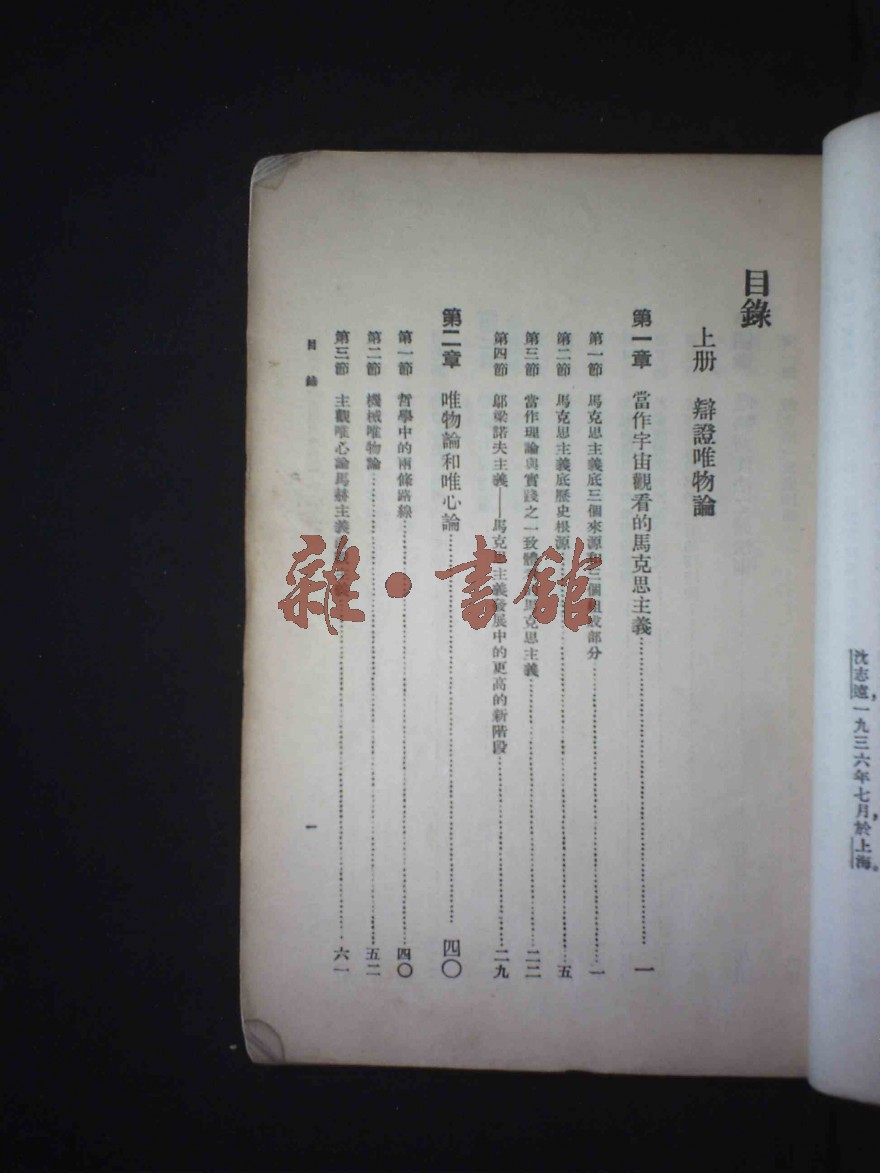 沈志遠，一九三六年七月，於上海。
目錄
上册 辯證唯物論
第一章 當作宇宙觀看的馬克思主義……一
第一節 馬克思主義底三個來源和三個組成部分……一
第二節 馬克思主義底歷史根源……五
第三節 當作理論與實踐之一致體看的馬克思主義……二二
第四節 鄔梁諾夫主義——馬克思主義發展中的更高的新階段……二九
第二章 唯物論和唯心論……四〇
第一節 哲學中的兩條路線……四〇
第二節 機械唯物論……五二
第三節 主觀唯心論馬赫主義……六一
目錄
一
雜·書館